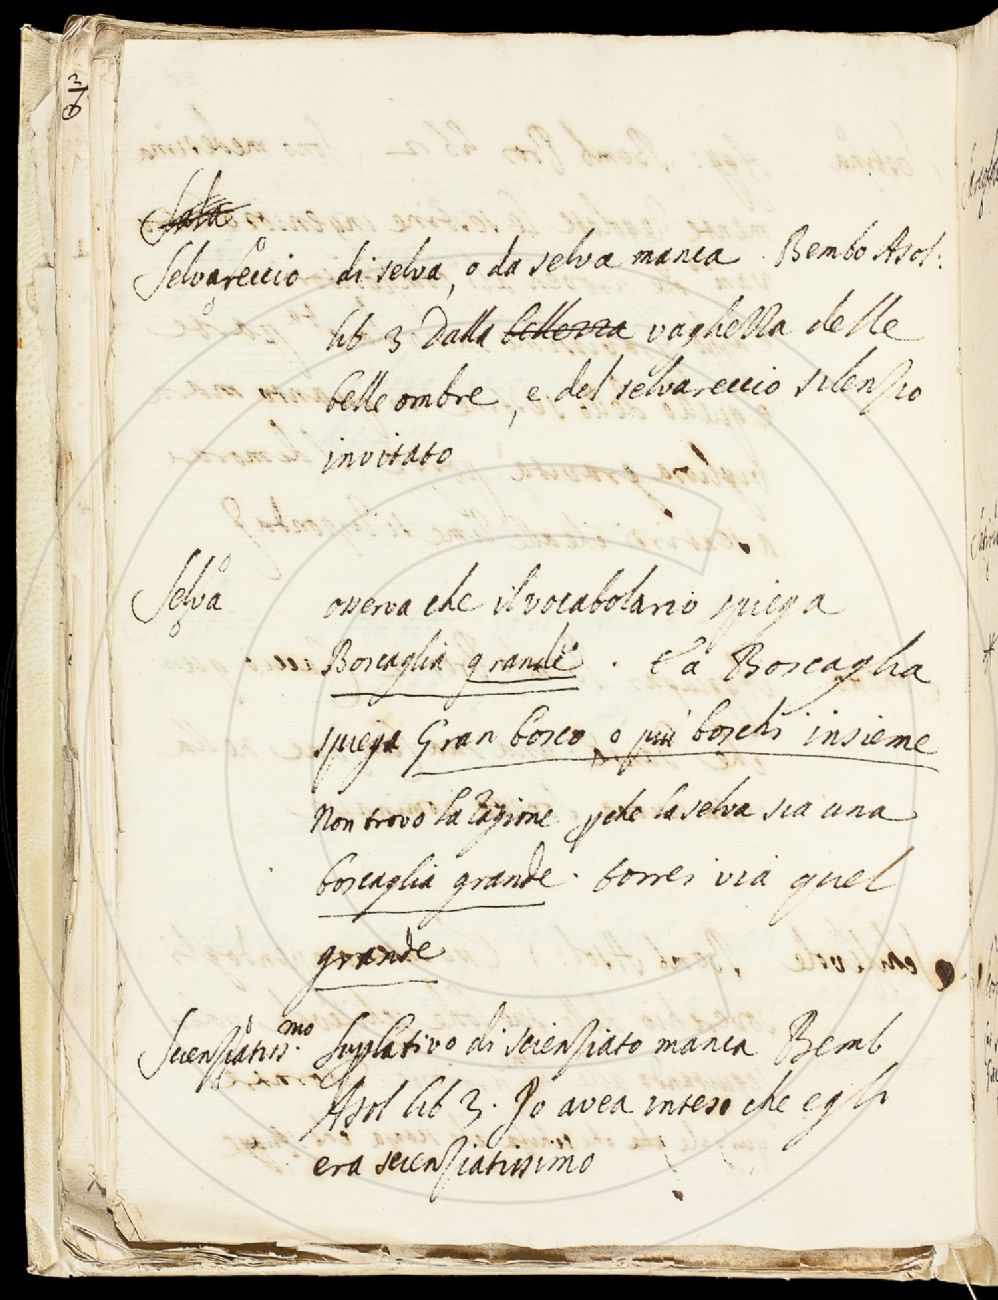 Selvareccio di selva, o da selva manca. Bembo Asol:
lib 3 Dalla bellezza vaghezza delle
belle ombre, e del selvareccio silenzio
invitato
Selva osserva che il vocabolario spiega
Boscaglia grande. E a Boscaglia
spiega Gran bosco, o più boschi insieme
Non trovo la ragione pche la selva sia una
boscaglia grande. torrei via quel
grande
Scienziatiss.mo Suplativo di scienziato manca Bemb
Asol lib 3. Io avea inteso che egli
era scienziatissimo